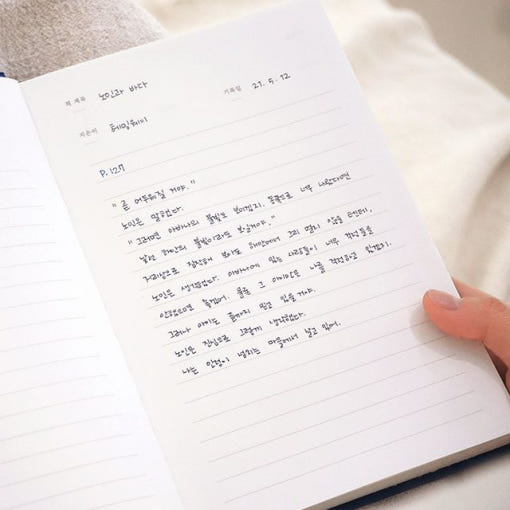 책 제목 노인과 바다 기록일 21. 5. 12
지은이 헤밍웨이
P. 127
"곧 어두워질 거야."
노인은 말했다.
"그러면 아바나의 불빛도 보이겠지. 동쪽으로 너무 나왔다면
낯선 해안의 불빛이라도 보일거야."
저래상으로 짐작해 보아도 해안에서 그리 멀지 않을 텐데,
노인은 생각했다. 아바나에 있는 사람들이 너무 걱정들을
안했으면 좋겠어. 물론 그 아이만은 나를 걱정하고 있겠지.
그러나 아이는 끝까지 믿고 있을거야.
노인은 진심으로 그렇게 생각했다.
나는 인정이 넘치는 마을에서 살고 있어.